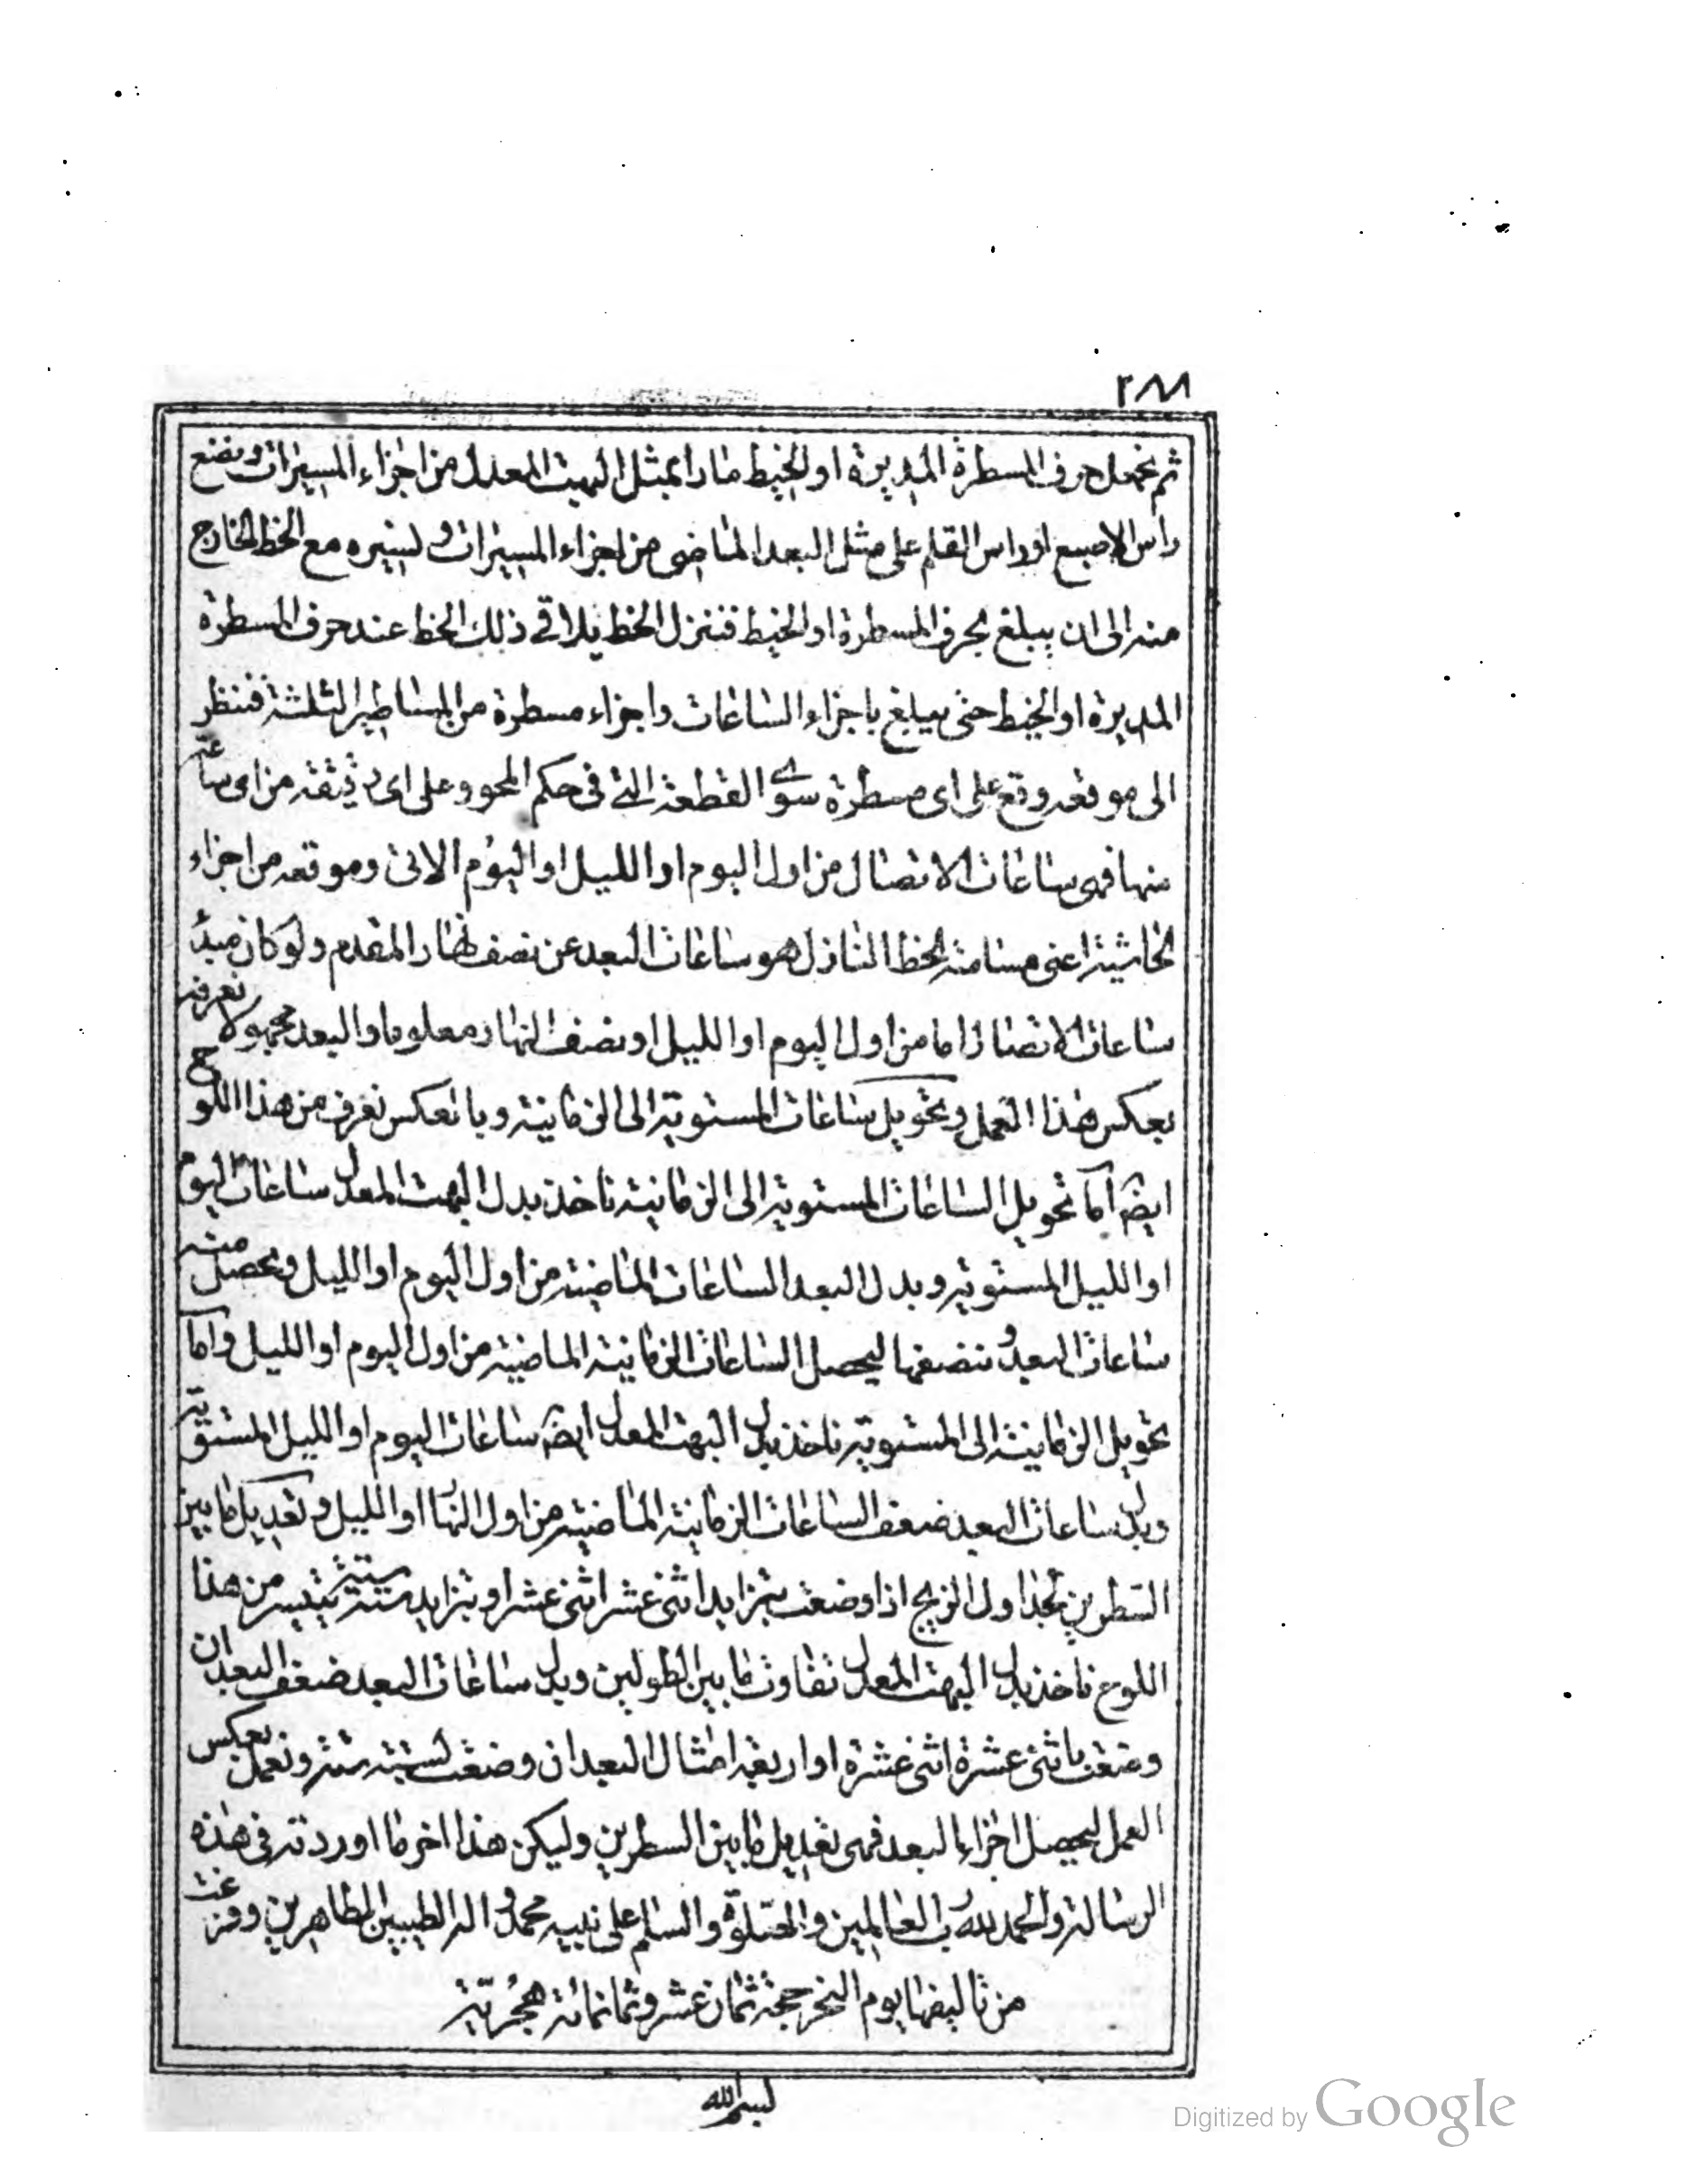 ٢٨٨
ثم نجعل حرف المسطرة المديرة او الخيط مارا بمثل البهت المعدل من اجزاء المسيرات ونضع
راس الاصبع او راس القلم على مثل البعد الماضى من اجزاء المسيرات ولنسيره مع الخط الخارج
منه الى ان يبلغ بحرف المسطرة او الخيط فننزل الخط يلاقى ذلك الخط عند حرف المسطرة
المديرة او الخيط حتى يبلغ باجزاء الساعات واجزاء مسطرة من المساطير الثلثة فننظر
الى موقعه وقع على اى مسطرة سوى القطعة التى فى حكم المحو وعلى اى دقيقة من اى ساعة
منها فهى ساعات الاتصال من اول اليوم او الليل او اليوم الاتى وموقعه من اجزاء
الحاشية اعنى مسامته الخط النازل هو ساعات البعد عن نصف نهار المقدم ولو كان مبدأ
ساعات الاتصال اما من اول اليوم او الليل او نصف النهار معلوما والبعد مجهولا نعرفه
بعكس هذا العمل وتحويل ساعات المستوية الى الزمانية وبالعكس نعرف من هذا اللوح
ايضا اما تحويل الساعات المستوية الى الزمانية ناخذ بدل البهت المعدل ساعات اليوم
او الليل المستوية وبدل البعد الساعات الماضية من اول اليوم او الليل ونحصل منه
ساعات البعد وننصفها ليحصل الساعات الزمانية الماضية من اول اليوم او الليل واما
تحويل الزمانية الى المستوية ناخذ بدل البهت المعدل ايضا ساعات اليوم او الليل المستوية
وبدل ساعات البعد ضعف الساعات الزمانية الماضية من اول النهار او الليل وتعديل ما بين
السطرين بجداول الزيج اذا وضعت بتزايد اثنى عشر اثنى عشر او بتزايد ستة ستة يتيسر من هذا
اللوح ناخذ بدل البهت المعدل تفاوت ما بين الطولين وبدل ساعات البعد ضعف البعد ان
وضعت باثنى عشرة اثنى عشرة او اربعة امثال البعد ان وضعت لستة ستة ونعمل بعكس
العمل ليحصل اجزاء البعد فهى تعديل ما بين السطرين وليكن هذا اخر ما اوردته فى هذه
الرسالة والحمد لله رب العالمين والصلوة والسلم على نبيه محمد واله الطيبين الطاهرين وفرغت
من تاليفها يوم النحر حجة ثمان عشر وثمانمائة هجرية
بسم الله
Digitized by Google